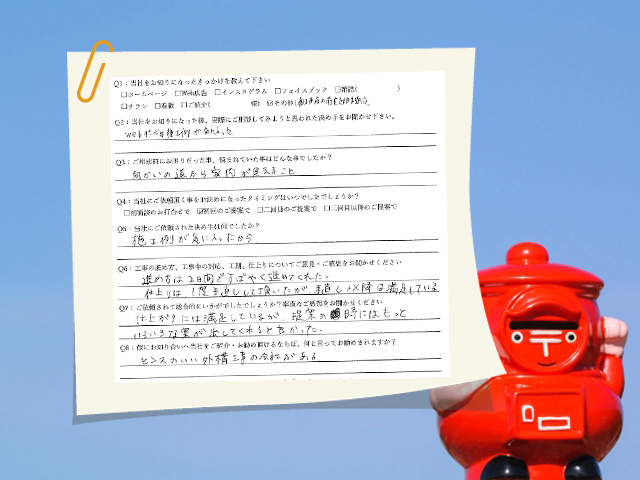 Q1：当社をお知りになったきっかけを教えて下さい
□ホームページ □Web広告 □インスタグラム □フェイスブック □雑誌( )
□チラシ □看板 □ご紹介( 様) ☑その他(
Q2：当社をお知りになった後、実際にご相談してみようと思われた決め手をお聞かせ下さい。
webで施工例が
Q3：ご相談前にお困りだった事、悩まれていた事はどんな事でしたか？
向かいの道から家内が見えること
Q4：当社にご依頼頂く事をお決めになったタイミングはいつでしたでしょうか？
□初面談のお打合せで ☑初回のご提案で □二回目のご提案で □三回目以降のご提案で
Q5：当社にご依頼された決め手は何でしたか？
施工例が気に入ったから
Q6：工事の進め方、工事中の対応、工期、仕上りについてご意見・ご感想をお聞かせください
進め方は2日間ですばやく進めてくれた。
仕上りは1度手直しして頂いたが、手直し以降は満足している
Q7：ご依頼されて総合的にいかがでしたでしょうか？率直なご感想をお聞かせください
仕上がりには満足しているが、提案の時にはもっと
いろいろな案が出してくれると良かった。
Q8：仮にお知り合いへ当社をご紹介・お勧め頂けるならば、何と言ってお勧めされますか？
センスのいい外構工事の会社がある
〒